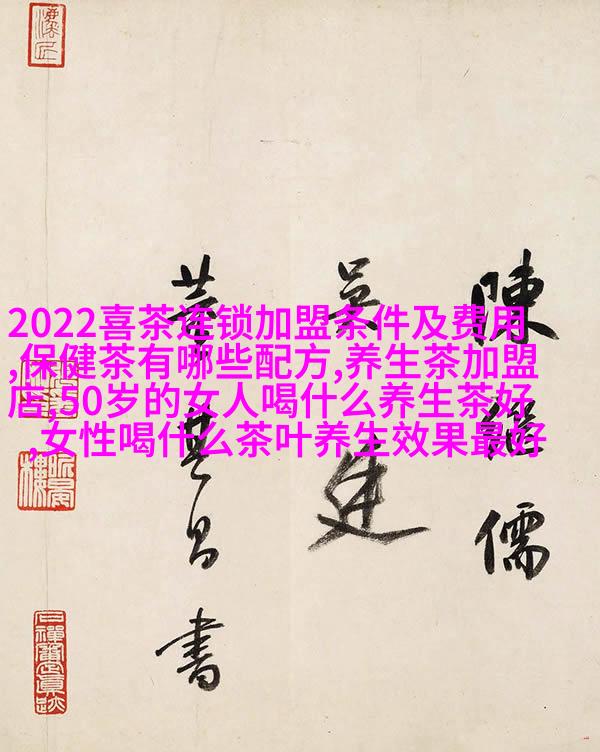 2022喜茶连锁加盟条件及费用
,保健茶有哪些配方,养生茶加盟
店,50岁的女人喝什么养生茶好
,女性喝什么茶叶养生效果最好
陳繼儒
吳廷
董其昌書